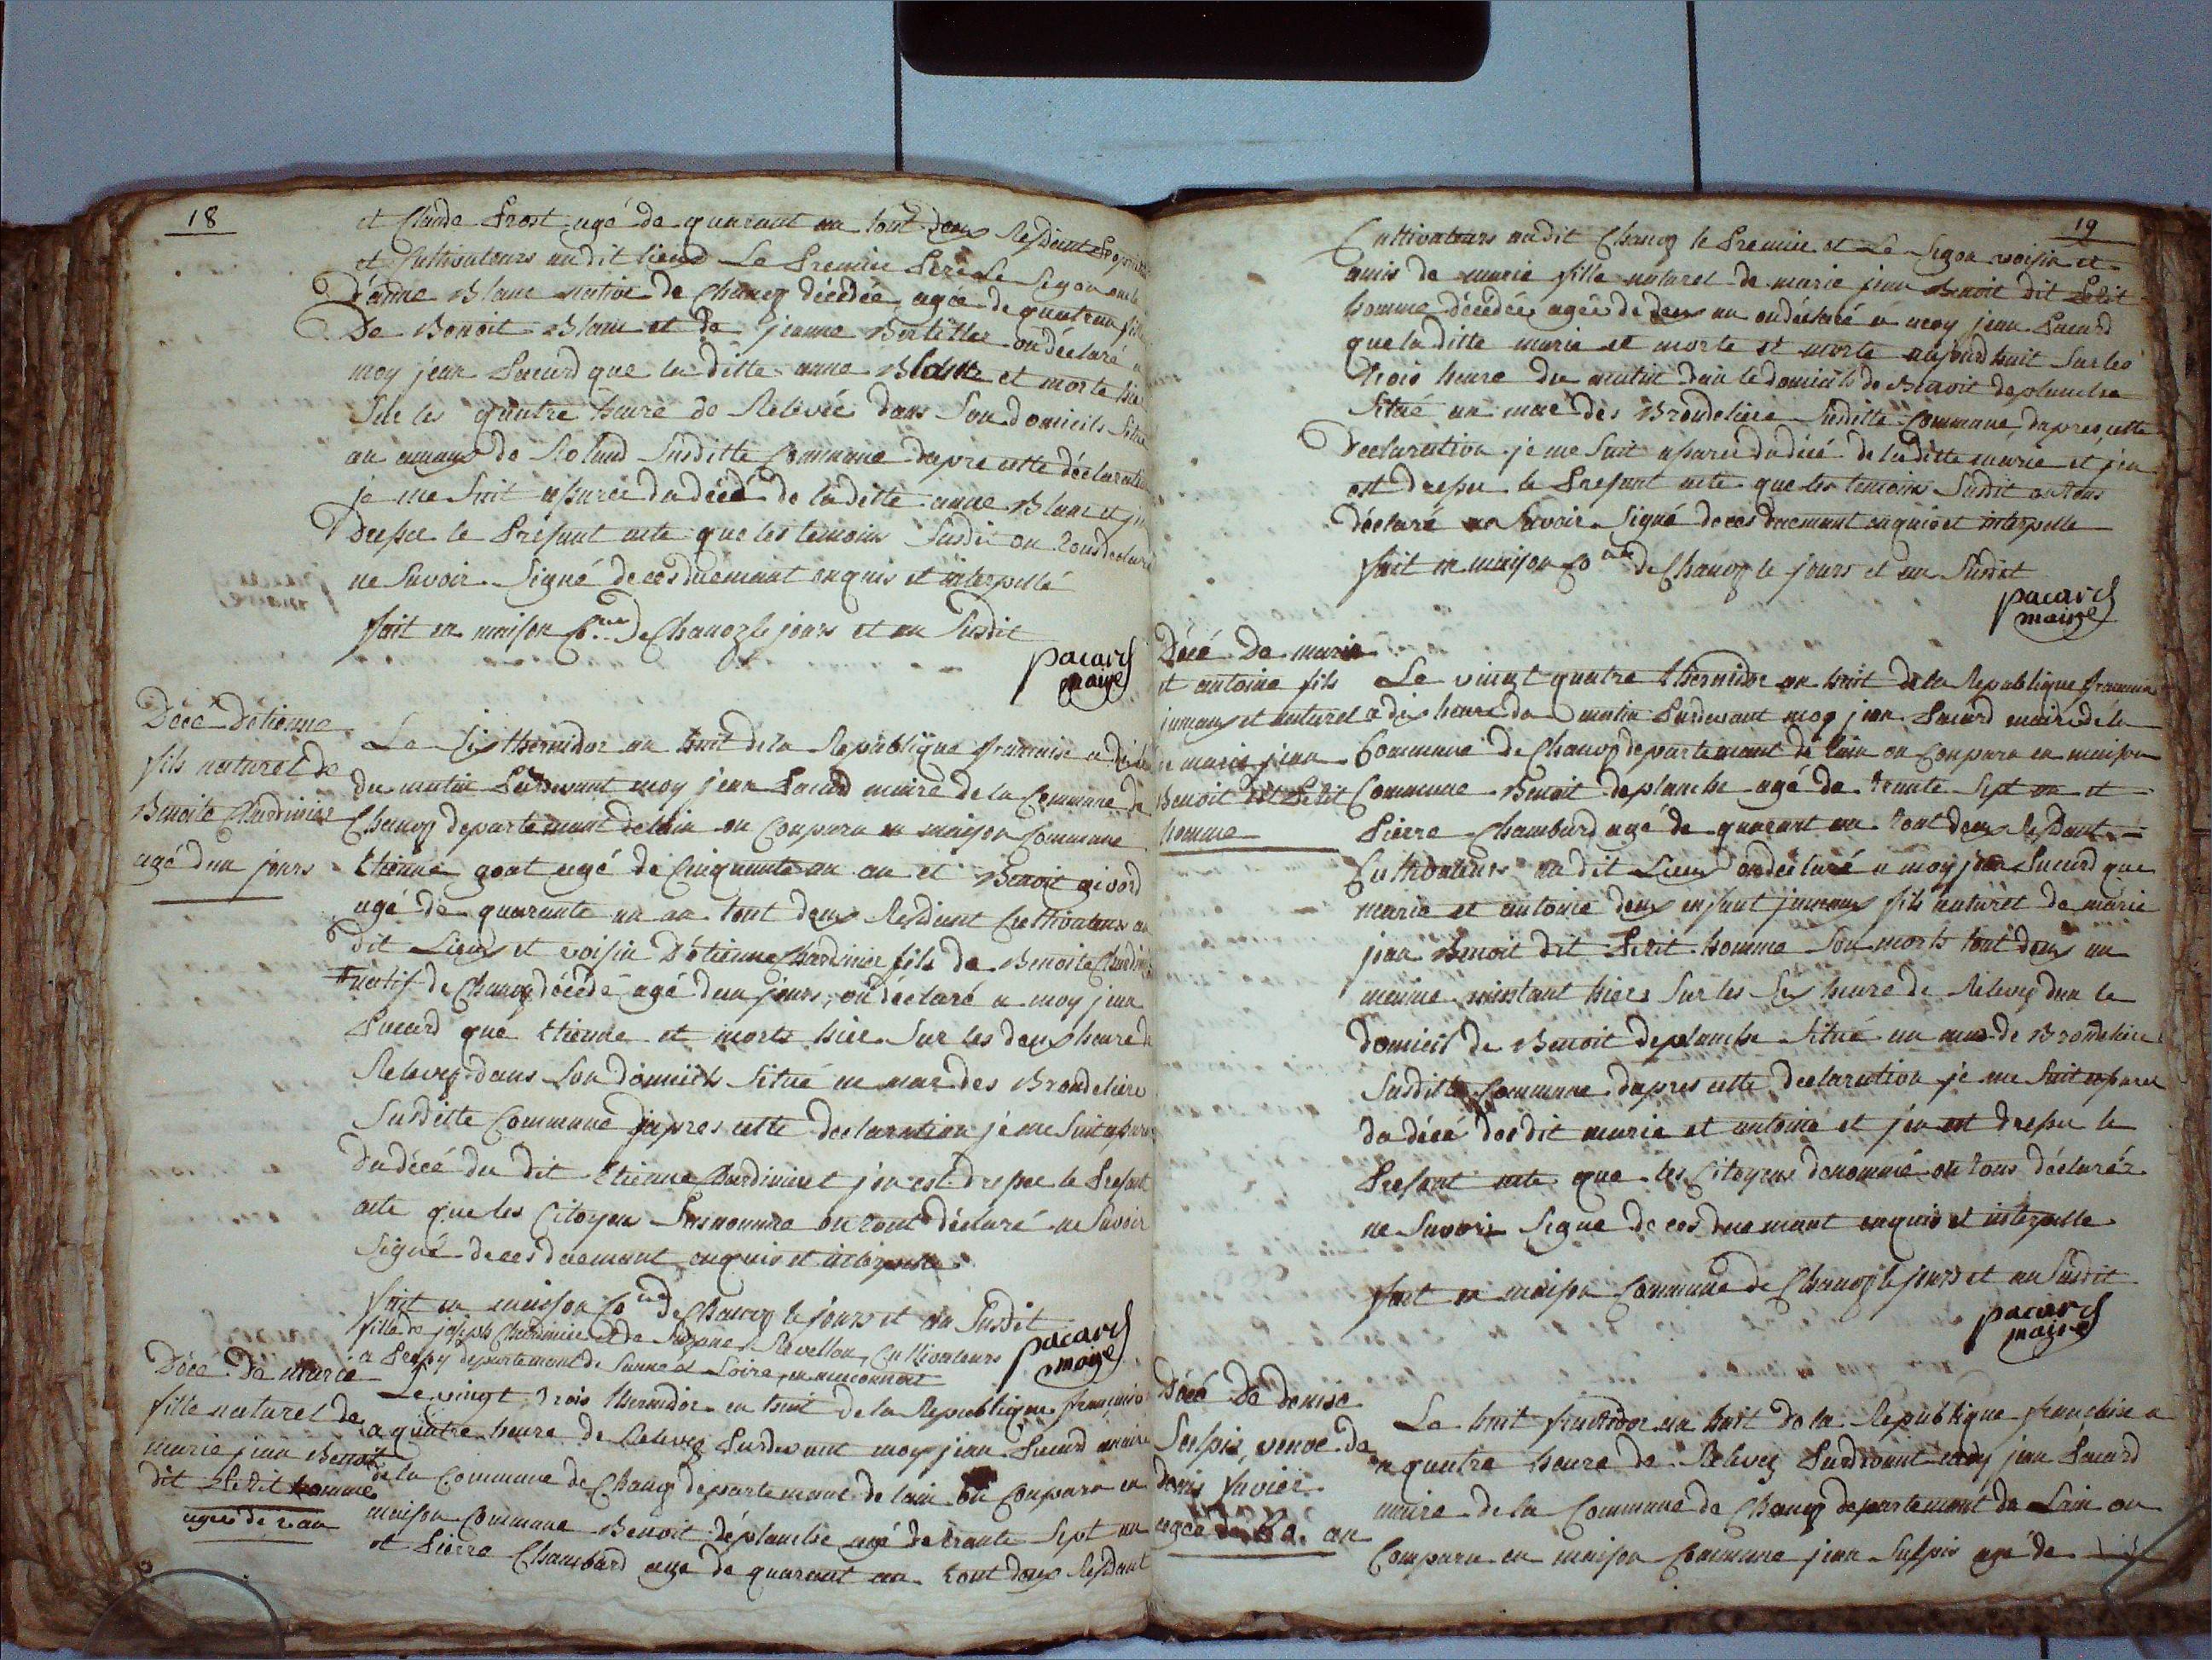 18
et Claude Prost agé de quarant an tout deux Residant
et Cultivateurs au dit lieux Le Premier Pere Le Segon oncle
D'anne Blanc native de Chanoz décédée, agée de quatre an fille
De Benoit Blanc et de jeanne on déclaré a
moy jean Pacard que la ditte anne Blanc et morte hier
sur les quatre heure de Relevée dans son domicils situé
au amaux de Roland susditte Commune dapre cette déclaration
je me suit asuree du décé de la ditte anne Blanc et jen
Dressee le Présant acte que les temoins susdit on tous declaré
ne savoir signé de ces duement enquis et interpellé
fait en maison Co.ne de Chanoz le jours et an susdit
pacard
maire
Décé Detienne
fils naturel de
Benoite Chardinier
agé dun jours
Le Six thermidor an huit de la Republique francaise a dix heure
du matin Pardevant moy jean Pacard maire de la Commune de
Chanoz departemant de lain on Conparu en maison Commune
Etienne goat agé de Cinquante an an et Benoit givord
agé de quarante un an tout deux Residant Cultivateurs au
dit Lieux et voisin D'étienne Chardinier fils de Benoite Chardinier
natif de Chanoz décédé agé dun jours, on déclaré a moy jean
Pacard que Etienne et morts hier sur les deux heure de
Relevez dans son domicils situé au mas des Brondeliere
Susditte Commune dapres cette declaration je me suit asuree
du décé du dit Etienne Chardinier et jen est dressee le Presant
acte que les Citoyen Susnomme on tout déclaré ne Savoir
Signé de ces duemant enquis et interpelle
fait en maison Co.ne de Chanoz le jours et an Susdit
fille de joseph Chardinier et de Suzane Revellon, Cultivateurs
a departemant de Saune et Loire,
pacard
maire
Décé De marie
fille naturel de
marie jean Benoit
dit Petit homme
agée de 2 an
Le vingt trois thermidor an huit de la Republique française
a quatre heure de Relevez Pardevant moy jean Pacard maire
de la Commune de Chanoz departemant de lain on Conparu en
maison Commune Benoit déplanche agé de trante sept an
et Pierre Chambard age de quarant an tout deux Residant
19
Cultivateurs au dit Chanoz le Premier et Le Segon voisin et
amis de marie fille naturel de marie jean Benoit dit Petit
homme décédée agée de deux an on déclaré a moy jean Pacard
que la ditte marie et morte et morte aujourdhuit sur les
trois heure du matin dan le domicils de Benoit deplanche
situé au mas des Brondeliere susditte Commune, dapres cette
declaration je me suit asuree du décé de la ditte marie et jen
est dressee le Presant acte que les temoins Susdit on tous
déclaré ne Savoir Signé de ces duemant enquis et interpelle
fait en maison Co.ne de Chanoz le jours et an Susdit
pacard
maire
Décé de marie
et antoine fils
jumaux et naturel
de marie jean
Benoit dit Petit
homme
Le vingt quatre thermidor an huit de la Republique francaise
a dix heure du matin Pardevant moy jean Pacard maire de la
Commune de Chanoz departemant de lain on Conparu en maison
Commune Benoit deplanche agé de trante Sept an et
Pierre Chambard agé de quarant an tout deux Residant
Cultivateurs au dit Lieux on déclaré a moy jean Pacard que
marie et antoine deux enfant jumaux fils naturel de marie
jean Benoit dit Petit homme son morts tout deux au
meme instant hiers sur les Six heure de Relevez dan le
domicil de Benoit deplanche situé au mas de Brondeliere
Susditte Commune dapres cette declaration je me suit asuree
du décé desdit marie et antoine et jen est dressee le
Presant acte que les Citoyens denommé on tous déclaréz
ne Savoir Signe de ces duemant enquis et interpelle
fait en maison Commune de Chanoz le jours et an Susdit
pacard
maire
Décé De denise
Sulpis, veuve de
denis Javier
agée de 62 an
Le huit fructidor an huit de la Republique francaise a
a quatre heure de Relevez Pardevant moy jean Pacard
maire de la Commune de Chanoz departemant de Lain on
Comparu en maison Commune jean Sulpis agé de